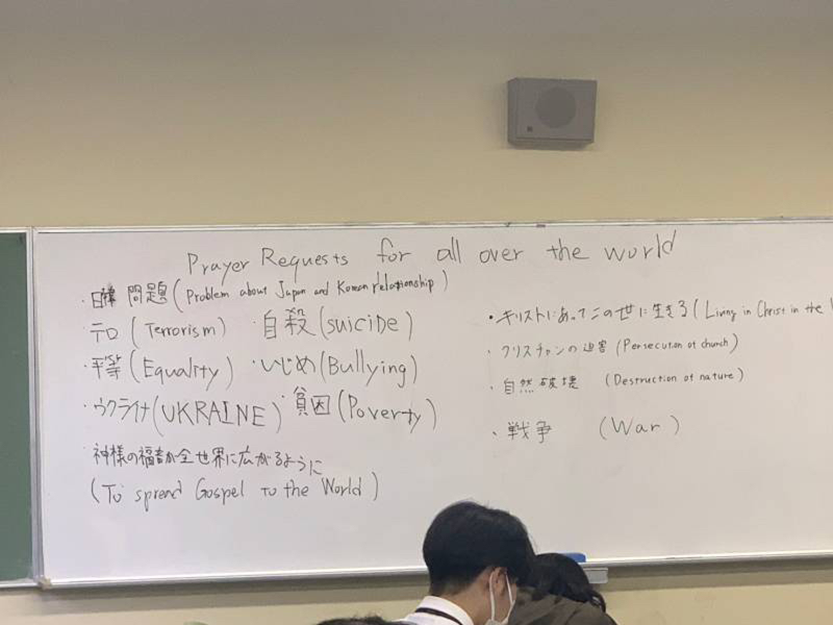 Prayer Requests for all over the world
・日韓問題(Problem about Japan and Korean relationship)
テロ(Terrorism) 自殺(suicide)
・平等(Equality) ・いじめ(Bullying)
・ウクライナ(UKRAINE) ・貧困(Poverty)
・神様の福音が全世界に広がるように
(To spread Gospel to the World)
・キリストにあってこの世に生きる(Living in Christ in the
・クリスチャンの迫害(Persecution of church)
・自然破壊 (Destruction of nature)
・戦争 (War)